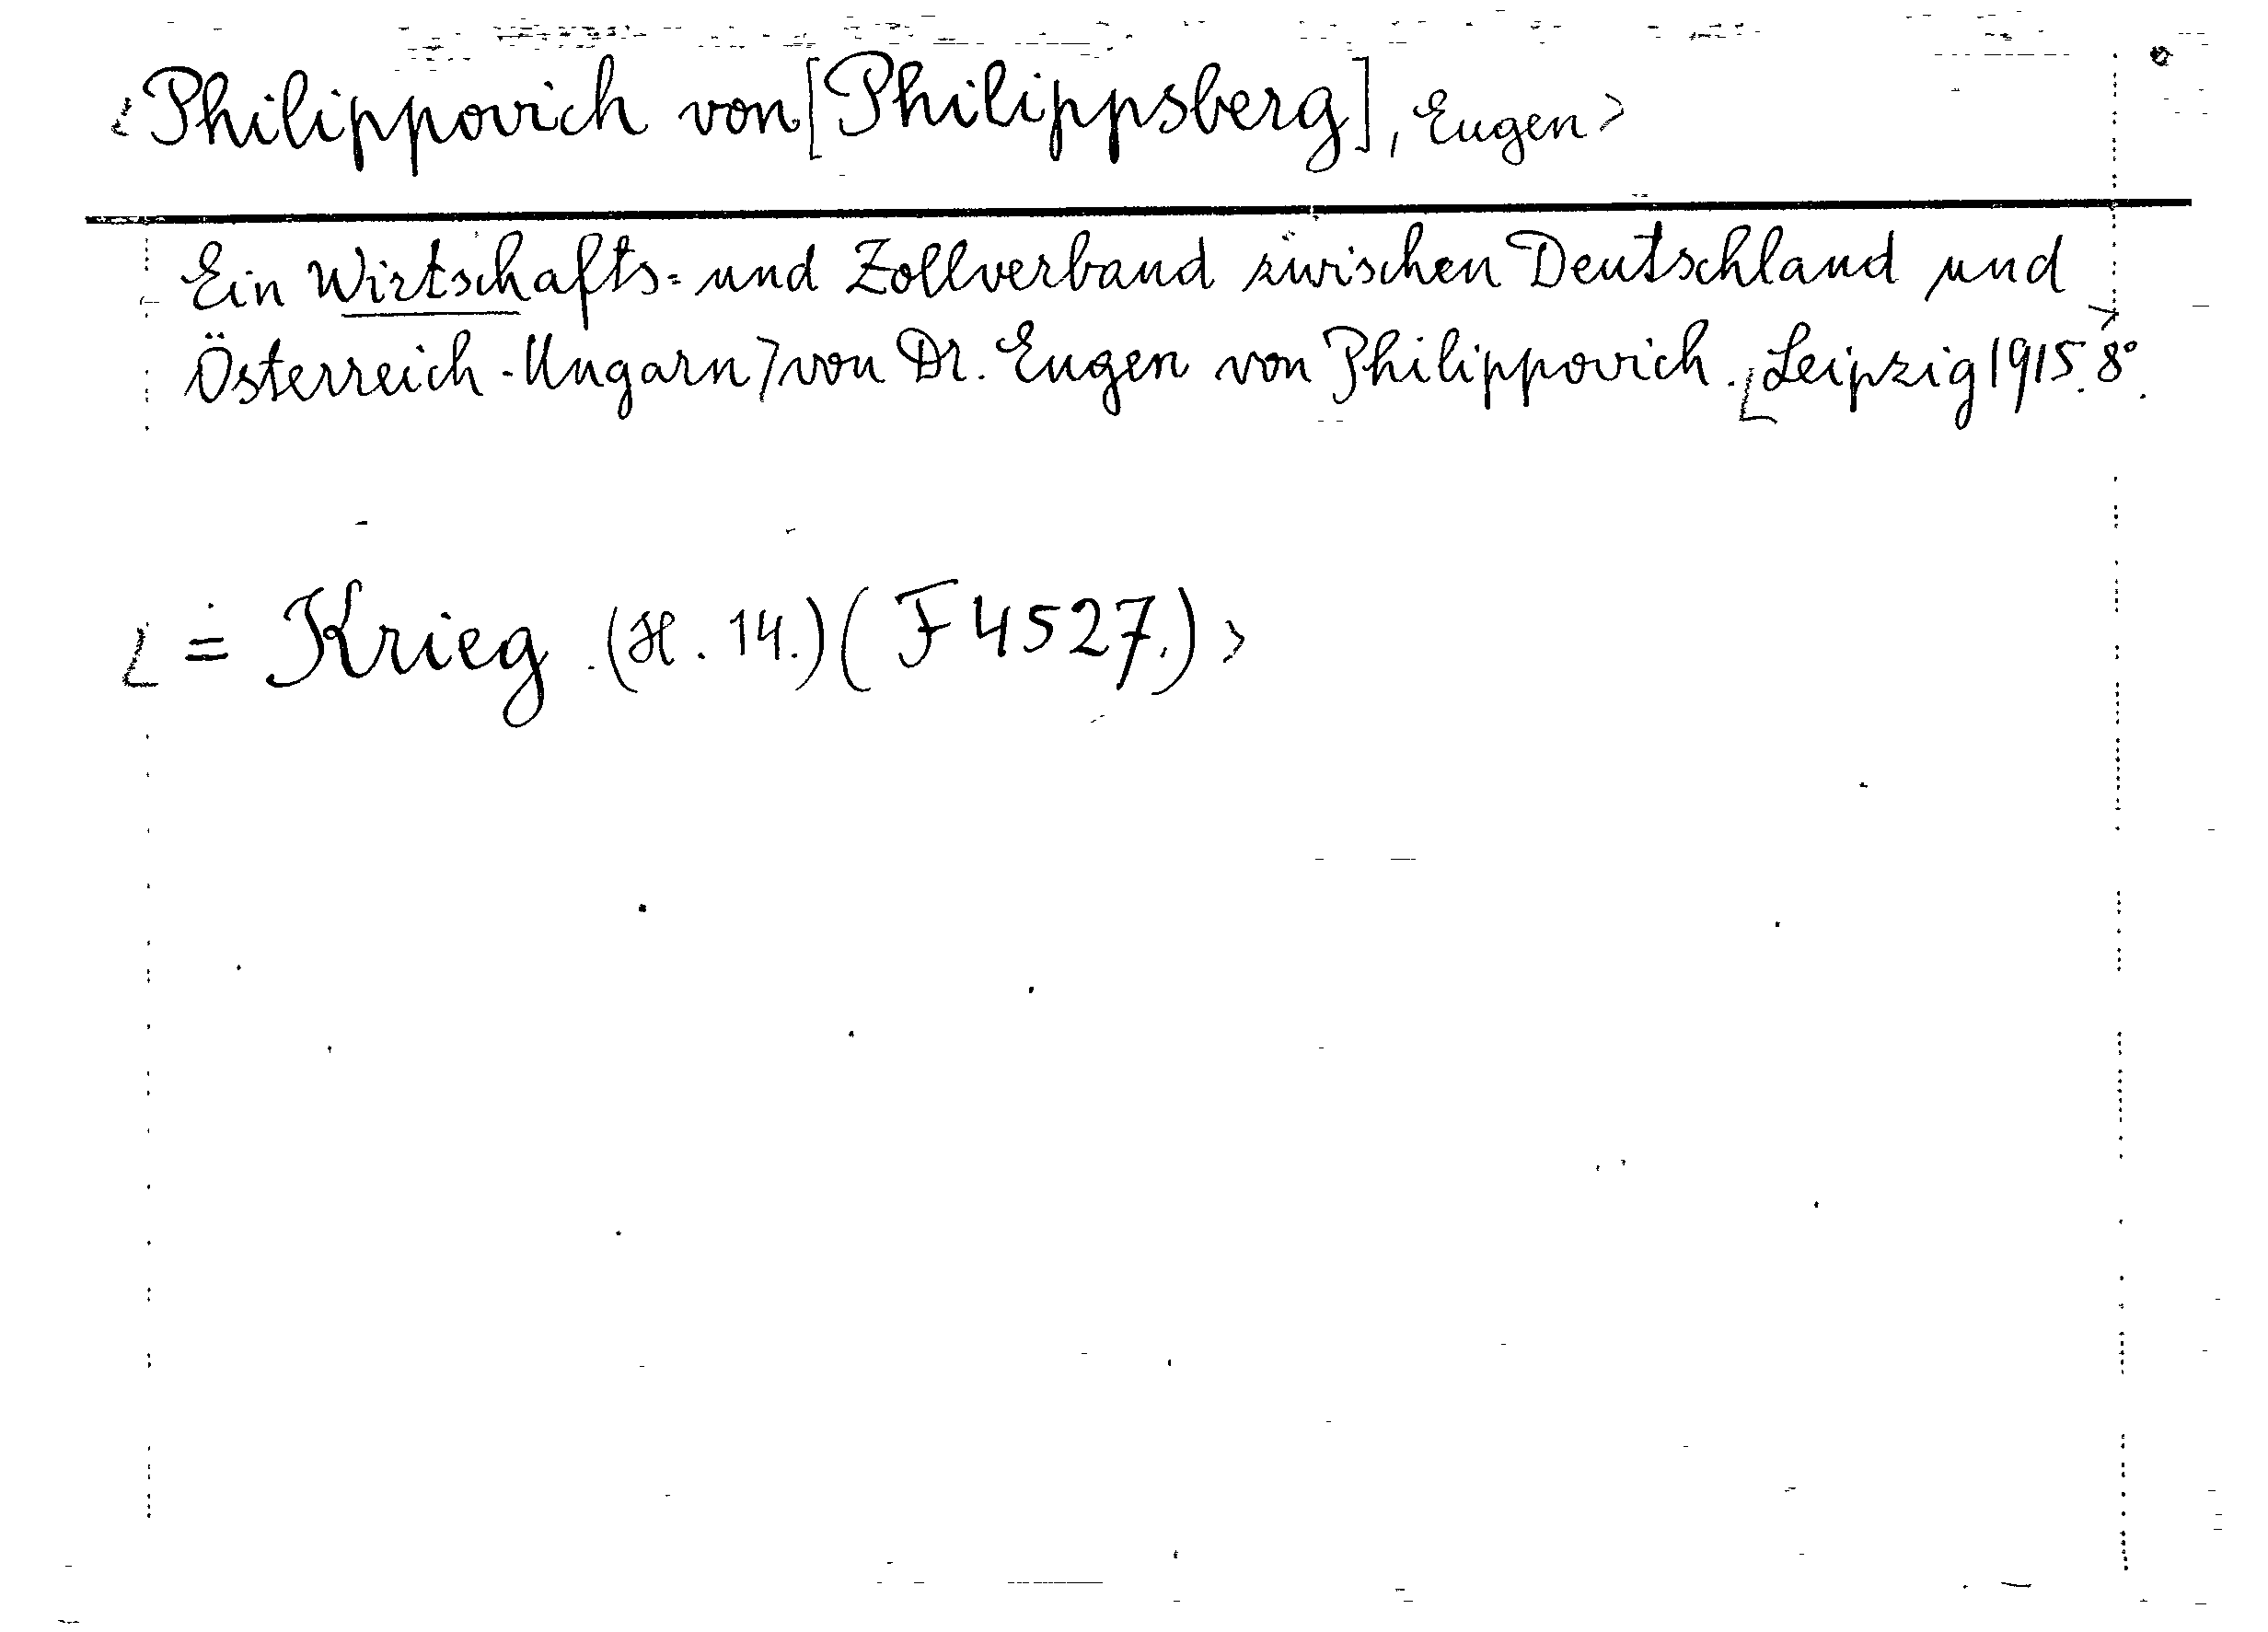 <Philippovich von [Philippsberg], Eugen>
Ein Wirtschafts= und Zollverband zwischen Deutschland und
Österreich-Ungarn> von Dr. Eugen von Philippovich. <Leipzig 1915. 8°.>
<= Krieg. (H. 14.) (F 4527.)>